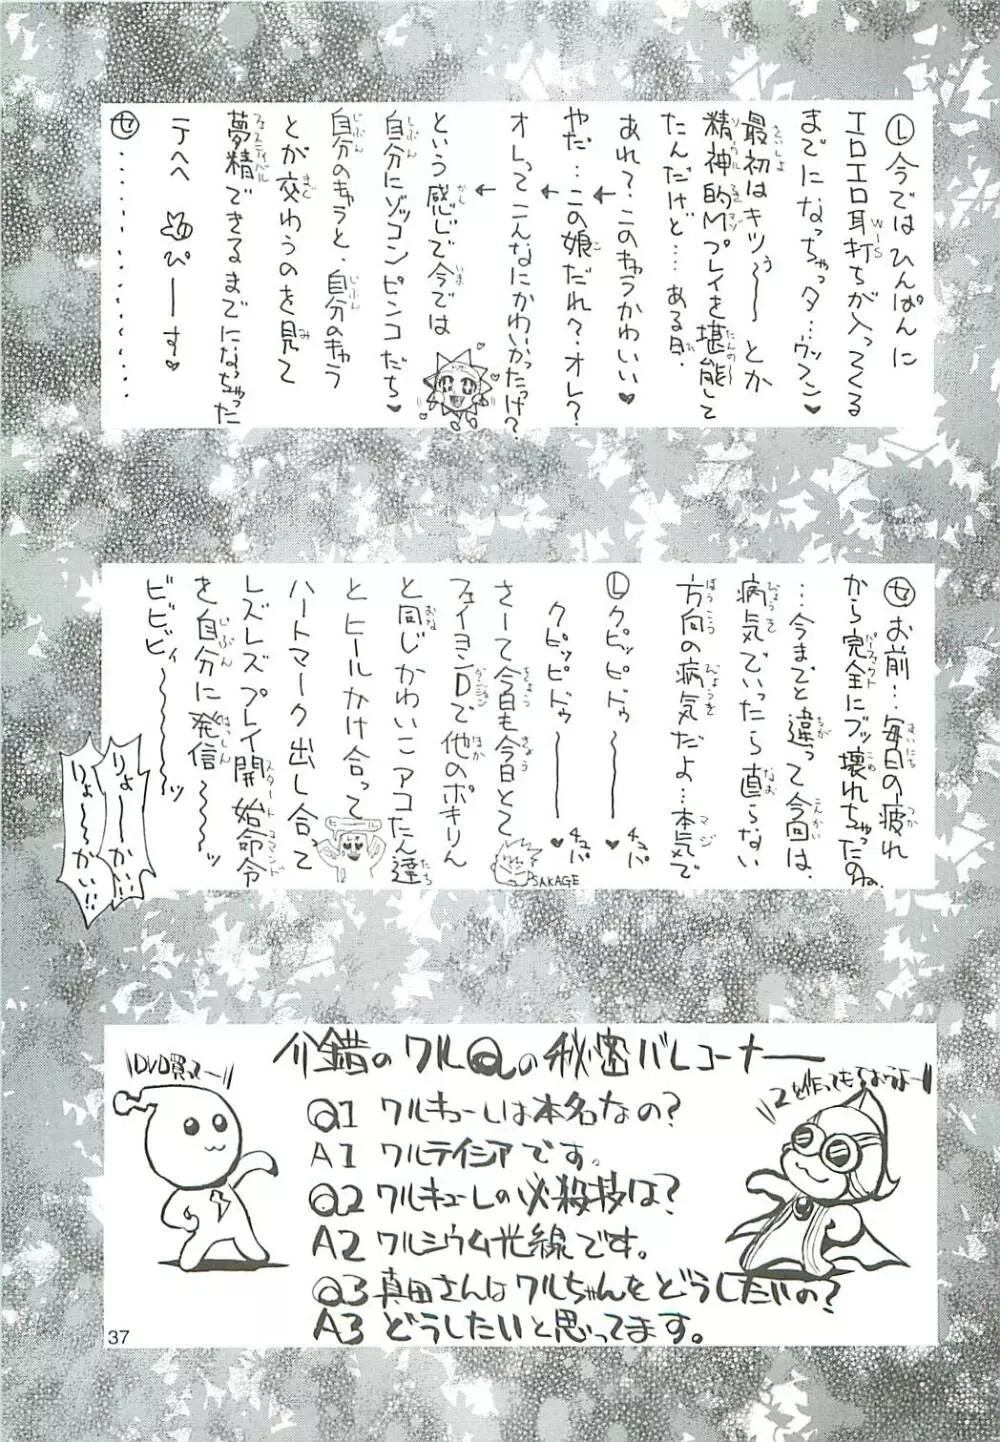 Ⓛ今ではひんぱんに
エロエロ耳打ちが入ってくる
WIS
までになっちゃっタ…ウッフン♥
最初はキツぅ〜〜とか
さいしょ
精神的Mプレイを堪能して
たんだけど…ある日、
あれ?このキャラかわいい♥
やだ…この娘だれ?オレ?
オレってこんなにかわいかったっけ?
という感じで今では
自分にゾッコンピンコだち♥
自分のキャラと、自分のキャラ
とが交わうのを見て
夢精できるまでになっちゃった
フェスティバル
テヘヘ ぴーーす♥
㋝…………………
㋝お前…毎日の疲れ
から完全にブッ壊れちゃったのね
パーフェクト
…今までと違って今回は、
病気でいったら直らない
方向の病気だよ…本気で
マジ
Ⓛクピッピドゥ〜〜〜♥チュパ
クピッピドゥ〜〜〜♥チュパ
さーて今日も今日とて
SAKAGE
フェイヨンDで他のポキりん
ダンジョン
と同じかわいこアコたん達
とヒールかけ合って
ハートマーク出し合って
レズレズプレイ開始命令
スタートコマンド
を自分に発信〜〜〜ッ
ビビビィ〜〜〜〜ッ
りょーーかい!!
りょ〜〜かい!!
介錯のワルQの秘密バレコーナー
DVD買ってー
2を作ってもらおうよー
Q1 ワルキューレは本名なの?
A1 ワルテイシアです。
Q2 ワルキューレの必殺技は?
A2 ワルシウム光線です。
Q3 真田さんはワルちゃんをどうしたいの?
A3 どうしたいと思ってます。
37